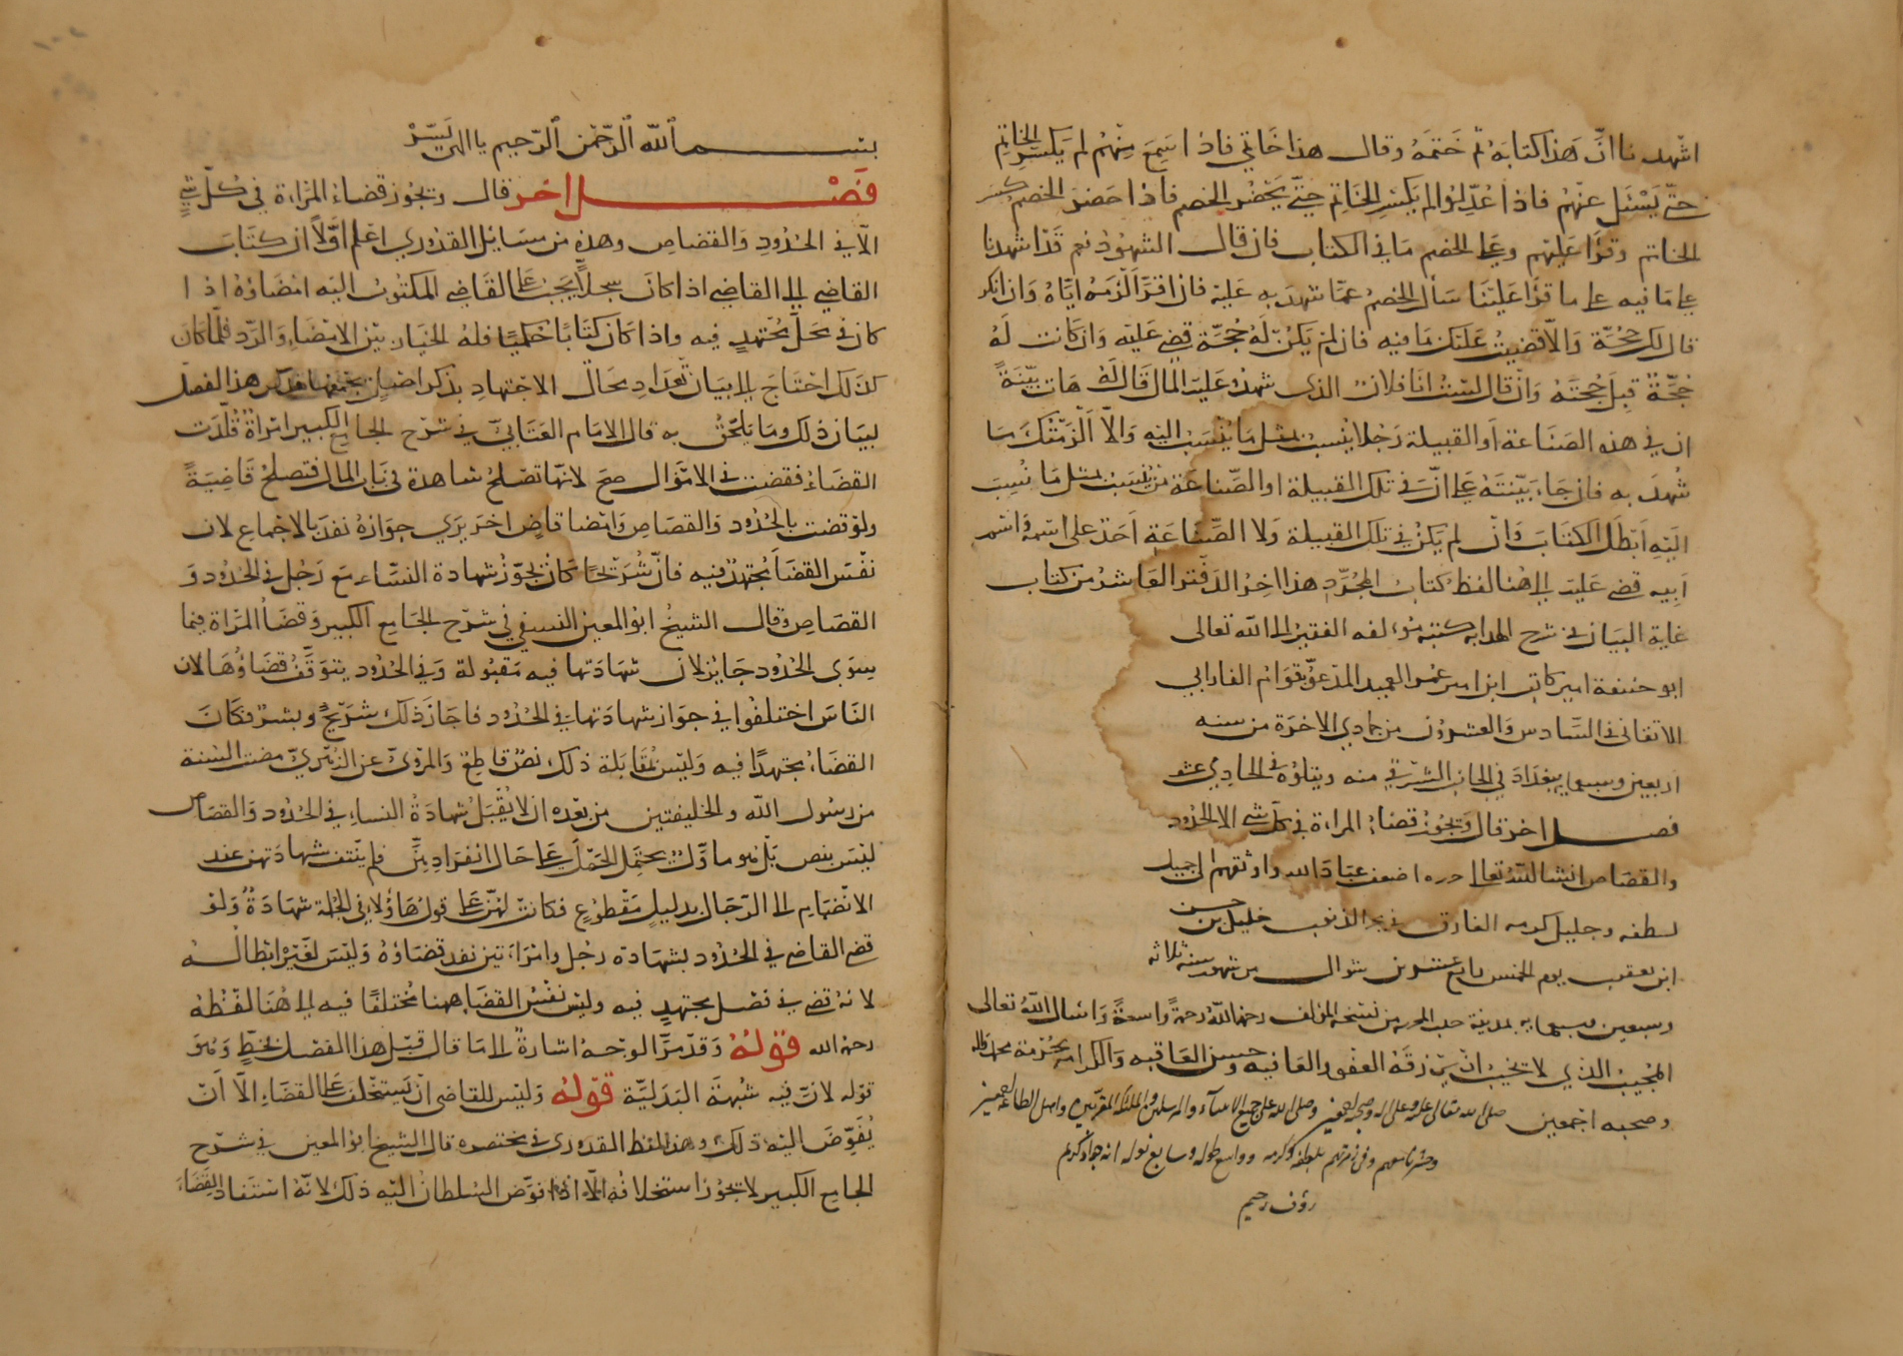 اشهدنا ان هذا كتابه ثم ختمه وقال هذا خاتمي فاذا سمع منهم لم يكسر الخاتم
حتى يسئل عنهم فاذا عدلوا لم يكسر الخاتم حتى يحضر الخصم فاذا حضر الخصم كسر
الخاتم وقرا عليهم وعلى الخصم ما في الكتاب فان قال الشهود نعم قد اشهدنا
على ما فيه على ما قرا علينا سال الخصم عما شهد به عليه فان اقر الزمه اياه وان انكر
قال لك حجة والا قضيت عليك ما فيه فان لم يكن له حجة قضى عليه وان كانت له
حجة قبل حجته وان قال لست انا فلان الذى شهد عليه المال قال له هات بينة
ان في هذه الصناعة او القبيلة رجلا ينسب بمثل ما ينسب اليه والا الزمتك ما
شهد به فان جاء ببينته على ان في تلك القبيلة او الصناعة من ينسب بمثل ما نسب
اليه ابطل الكتاب وان لم يكن في تلك القبيلة ولا الصناعة احد على اسمه واسم
ابيه قضى عليه الى هنا لفظ كتاب المجرد هذا اخر الدفتر العاشر من كتاب
غاية البيان في شرح الهداية كتبه مؤلفه الفقير الى الله تعالى
ابو حنيفة امير كاتب ابن امير عمر العميد المدعو بقوام الفارابي
الاتقاني في السادس والعشرون من جمادي الاخرة من سنه
اربعين وسبعمايه ببغداد في الجانب الشرقي منه ويتلوه في الحادي عشر
فصل اخر قال ويجوز قضاء المراة في كل شى الا الحدود
والقصاص انشا الله تعالى حرره اضعف عباد الله واوثقهم الى جميل
لطفه وجليل كرمه الغارق في بحر الذنوب خليل بن حسن
ابن يعقوب يوم الخميس رابع عشرين شوال من شهور سنة ثلاثه
وسبعين وسبعمايه بمدينة حلب المحروسة من نسخة المؤلف رحمه الله رحمة واسعة واسال الله تعالى
المجيب الذي لا يخيب ان يرزقه العفو والعافيه وحسن العاقبه والكرامه بحرمة محمد واله
وصحبه اجمعين صلى الله تعالى عليه وعلى اله وصحبه اجمعين وصلى الله على جميع الانبياء والمرسلين والملائكة المقربين واهل الطاعة اجمعين
وحشرنا معهم وفي زمرتهم بلطفه وكرمه وواسع طوله وسابغ نوله انه جواد كريم
رؤف رحيم
بسم الله الرحمن الرحيم يا الهى يسر
فصل اخر قال ويجوز قضاء المراة في كل شي
الا في الحدود والقصاص وهذه من مسايل القدوري اعلم اولا ان كتاب
القاضي الى القاضي اذا كان سجلا يجب على القاضي المكتوب اليه امضاؤه اذا
كان في محل مجتهد فيه واذا كان كتابا حكميا فله الخيار بين الامضاء والرد فلما كان
كذلك احتاج الى بيان تعداد محال الاجتهاد بذكر هذا الفصل
لبيان ذلك وما يلحق به قال الامام العتابي في شرح الجامع الكبير امراة قلدت
القضاء فقضت في الاموال صح لانها تصلح شاهدة في باب المال فتصلح قاضية
ولو قضت بالحدود والقصاص وامضا قاض اخر يري جوازه نفذ بالاجماع لان
نفس القضا مجتهد فيه فان شريحا كان يجوز شهادة النساء مع رجل في الحدود و
القصاص وقال الشيخ ابو المعين النسفي في شرح الجامع الكبير وقضا المراة فيما
سوى الحدود جايز لان شهادتها فيه مقبولة وفي الحدود يتوقف قضاؤها لان
الناس اختلفوا في جواز شهادتها في الحدود فاجاز ذلك شريح وبشر فكان
القضاء مجتهدا فيه وليس بمقابلة ذلك نص قاطع والمروي عن الزهري مضت السنة
من رسول الله والخليفتين من بعده ان لا يقبل شهادة النساء في الحدود والقصاص
ليس بنص بل هو ماول يحتمل الحمل على حال انفرادهن فلم ينتف شهادتهن عند
الانضمام الى الرجال بدليل مقطوع فكانت لهن على قول هاؤلاء في الجملة شهادة ولو
قضى القاضي في الحدود بشهادة رجل وامراءتين نفد قضاؤه وليس لغيره ابطاله
لانه قضى في فصل مجتهد فيه وليس نفس القضا هاهنا مختلفا فيه الى هنا لفظه
رحمه الله قوله وقد مر الوجه اشارة الى ما قال قبل هذا الفصل بخط وهو
قوله لان فيه شبهة البدلية قوله وليس للقاضى ان يستخلف على القضاء الا ان
يفوض اليه ذلك وهذا لفظ القدورى في مختصره قال الشيخ ابو المعين في شرح
الجامع الكبير لا يجوز استخلافه الا اذا فوض السلطان اليه ذلك لانه استفاد القضاء